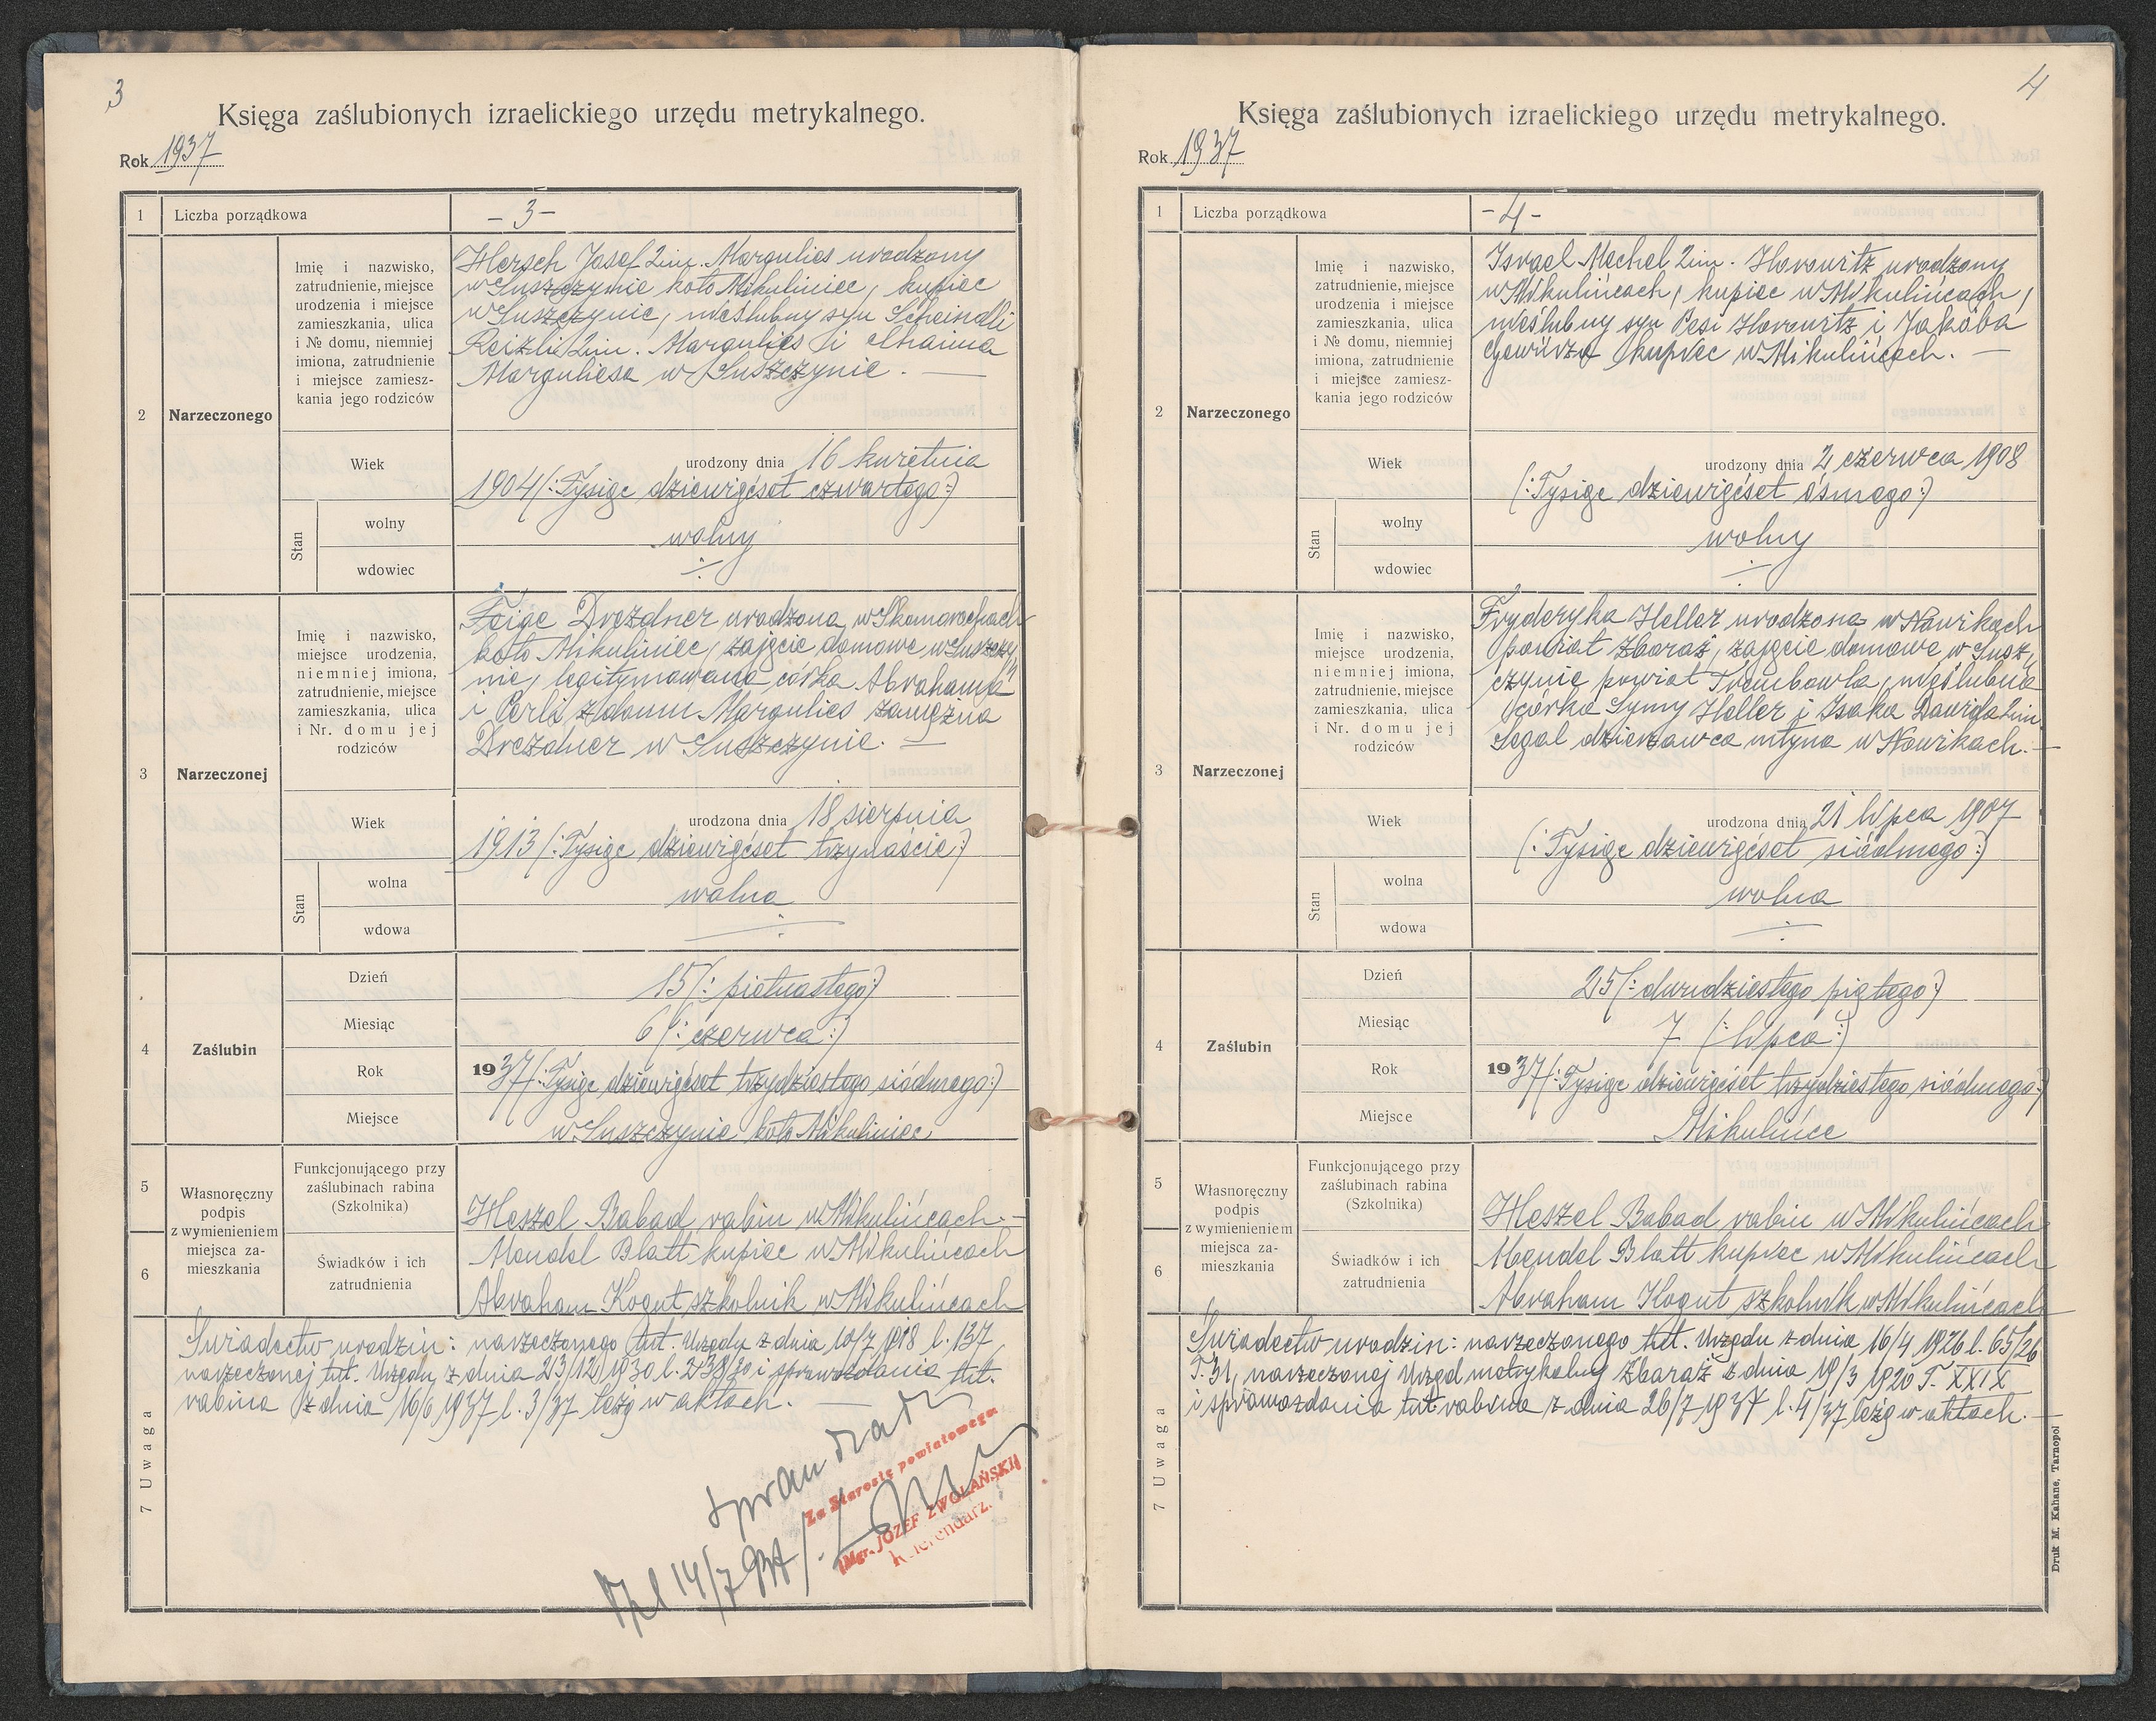 3
Księga zaślubionych izraelickiego urzędu metrykalnego.
Rok 1937
1 Liczba porządkowa - 3 -
2 Narzeczonego
Imię i nazwisko,
zatrudnienie, miejsce
urodzenia i miejsce
zamieszkania, ulica
i № domu, niemniej
imiona, zatrudnienie
i miejsce zamiesz-
kania jego rodziców
Hersch Josef 2im. Margulies urodzony
w Suszczynie koło Mikuliniec, kupiec
w Suszczynie, nieślubny syn Scheindli
Reizli 2im. Margulies i Chaima
Marguliesa w Suszczynie. —
Wiek
urodzony dnia 16 kwietnia
1904 (: Tysiąc dziewięćset czwartego :)
Stan
wolny
wolny
wdowiec
3 Narzeczonej
Imię i nazwisko,
miejsce urodzenia,
niemniej imiona,
zatrudnienie, miejsce
zamieszkania, ulica
i Nr. domu jej
rodziców
Feige Drezdner urodzona w Skomorochach
koło Mikuliniec, zajęcie domowe w Suszczy
nie, legitymowana córka Abrahama
i Perli z domu Margulies zamężna
Drezdner w Suszczynie. —
Wiek
urodzona dnia 18 sierpnia
1913 (: Tysiąc dziewięćset trzynaście :)
Stan
wolna
wolna
wdowa
4 Zaślubin
Dzień 15 (: piętnastego :)
Miesiąc 6 (: czerwca :)
Rok 1937 (: Tysiąc dziewięćset trzydziestego siódmego :)
Miejsce w Suszczynie koło Mikuliniec
5
6
Własnoręczny
podpis
z wymienieniem
miejsca za-
mieszkania
Funkcjonującego przy
zaślubinach rabina
(Szkolnika)
Heszel Babad rabin w Mikulińcach. —
Świadków i ich
zatrudnienia
Mendel Blatt kupiec w Mikulińcach
Abraham Kogut szkolnik w Mikulińcach
7 Uwaga
Świadectw urodzin: narzeczonego tut. Urzędu z dnia 10/7 1918 l. 137
narzeczonej tut. Urzędu z dnia 23/12 1930 l. 238/30 i sprawozdania tut.
rabina z dnia 16/6 1937 l. 3/37 leżą w aktach. —
Sprawdzał
14/7 937
Za Starostę powiatowego
Mgr. JÓZEF ZWOLAŃSKI
Referendarz.
4
Księga zaślubionych izraelickiego urzędu metrykalnego.
Rok 1937
1 Liczba porządkowa - 4 -
2 Narzeczonego
Imię i nazwisko,
zatrudnienie, miejsce
urodzenia i miejsce
zamieszkania, ulica
i № domu, niemniej
imiona, zatrudnienie
i miejsce zamiesz-
kania jego rodziców
Israel Mechel 2im. Horowitz urodzony
w Mikulińcach, kupiec w Mikulińcach,
nieślubny syn Pesi Horowitz i Jakóba
Gewürza kupiec w Mikulińcach. —
Wiek
urodzony dnia 2 czerwca 1908
(: Tysiąc dziewięćset ósmego :)
Stan
wolny
wolny
wdowiec
3 Narzeczonej
Imię i nazwisko,
miejsce urodzenia,
niemniej imiona,
zatrudnienie, miejsce
zamieszkania, ulica
i Nr. domu jej
rodziców
Fryderyka Heller urodzona w Nowikach
powiat Zbaraż, zajęcie domowe w Susz
czynie powiat Trembowla, nieślubna
córka Symy Heller i Isaka Dawida 2im
Segal dzierżawca młyna w Nowikach. —
Wiek
urodzona dnia 21 lipca 1907
(: Tysiąc dziewięćset siódmego :)
Stan
wolna
wolna
wdowa
4 Zaślubin
Dzień 25 (: dwudziestego piątego :)
Miesiąc 7 (: lipca :)
Rok 1937 (: Tysiąc dziewięćset trzydziestego siódmego :)
Miejsce Mikulińce
5
6
Własnoręczny
podpis
z wymienieniem
miejsca za-
mieszkania
Funkcjonującego przy
zaślubinach rabina
(Szkolnika)
Heszel Babad rabin w Mikulińcach
Świadków i ich
zatrudnienia
Mendel Blatt kupiec w Mikulińcach
Abraham Kogut szkolnik w Mikulińcach
7 Uwaga
Świadectw urodzin: narzeczonego tut. Urzędu z dnia 16/4 1926 l. 65/26
T. 31, narzeczonej Urząd metrykalny Zbaraż z dnia 19/3 1920 T. XXIX
i sprawozdania tut. rabina z dnia 26/7 1937 l. 4/37 leżą w aktach. —
Druk M. Kahane, Tarnopol